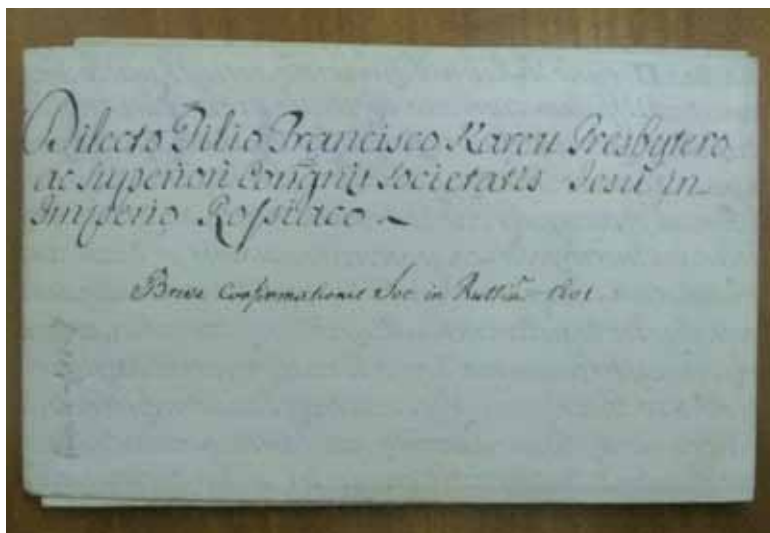 Dilecto Filio Francisco Kareu Presbytero
ac Superiori Congñis Societatis Jesu in
Imperio Rossiaco
Breve Confirmationis Soc. in Russia 1801